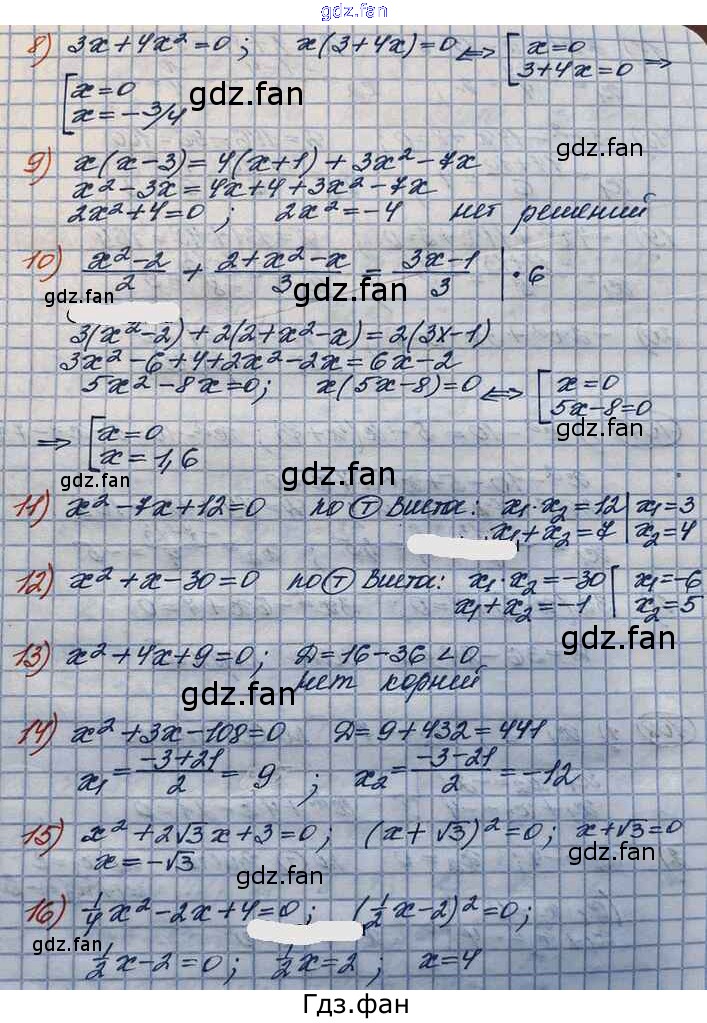 gdz.fan
8) 3x + 4x² = 0 ; x(3 + 4x) = 0 ⟺ [ x = 0
3 + 4x = 0 ⟹
[ x = 0
x = −3/4
gdz.fan
gdz.fan
9) x(x − 3) = 4(x + 1) + 3x² − 7x
x² − 3x = 4x + 4 + 3x² − 7x
2x² + 4 = 0 ; 2x² = −4 нет решений
10) (x² − 2)/2 + (2 + x² − x)/3 = (3x − 1)/3 | · 6
gdz.fan
gdz.fan
3(x² − 2) + 2(2 + x² − x) = 2(3x − 1)
3x² − 6 + 4 + 2x² − 2x = 6x − 2
5x² − 8x = 0; x(5x − 8) = 0 ⟺ [ x = 0
5x − 8 = 0
gdz.fan
⟹ [ x = 0
x = 1,6
gdz.fan
gdz.fan
11) x² − 7x + 12 = 0 по Ⓣ Виета: x₁ · x₂ = 12 | x₁ = 3
x₁ + x₂ = 7 | x₂ = 4
12) x² + x − 30 = 0 по Ⓣ Виета: x₁ · x₂ = −30 [ x₁ = −6
x₁ + x₂ = −1 x₂ = 5
gdz.fan
13) x² + 4x + 9 = 0; Д = 16 − 36 < 0
нет корний
gdz.fan
14) x² + 3x − 108 = 0 Д = 9 + 432 = 441
x₁ = (−3 + 21)/2 = 9 ; x₂ = (−3 − 21)/2 = −12
15) x² + 2√3 x + 3 = 0; (x + √3)² = 0; x + √3 = 0
x = −√3
gdz.fan
gdz.fan
16) ¼x² − 2x + 4 = 0; (½x − 2)² = 0;
gdz.fan
½x − 2 = 0; ½x = 2; x = 4
gdz.fan
Гдз.фан